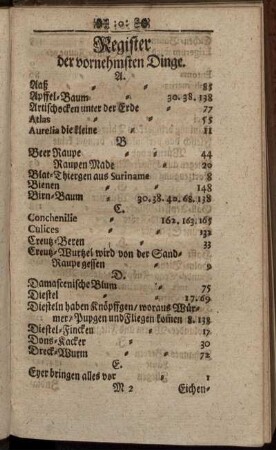 :0:
Register
der vornehmsten Dinge.
A.
Aaß " " 85
Apffel-Baum " 30. 38. 138
Artischocken unter der Erde " 77
Atlas " " 55
Aurelia die kleine " " 11
B
Beer Raupe " " 44
Raupen Made " " 20
Blat-Thiergen aus Suriname " 8
Bienen " " 148
Birn-Baum " 30. 38. 40. 68. 138
C.
Conchenilie " 162. 163. 165
Culices " " 132
Creutz-Beren " " 33
Creutz-Wurtzel wird von der Sand-
Raupe gessen " " 9
D.
Damascenische Blum " 75
Diestel " " 17. 69
Diesteln haben Knöpffgen/ woraus Wür-
mer-Pupgen und Fliegen kom̃en 8. 138
Diestel-Fincken " " 17
Dons-Kacker " " 30
Dreck-Wurm " " 72
E.
Eyer bringen alles vor " 1
M 2 Eichen-